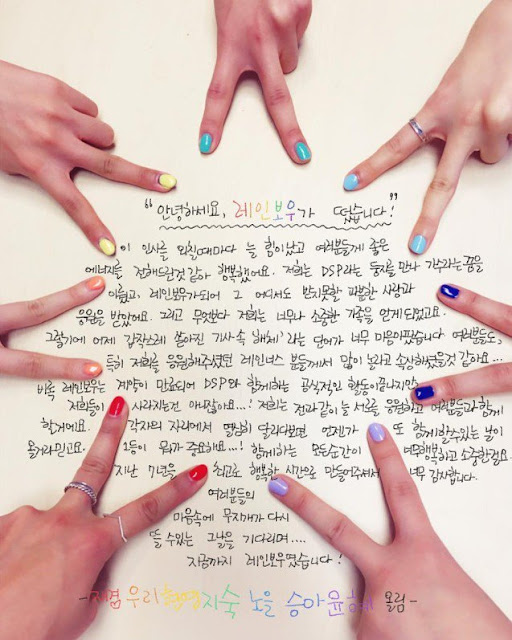 "안녕하세요, 레인보우가 떴습니다!"
이 인사를 외칠때마다 늘 힘이났고 여러분들께 좋은
에너지를 전해드린것 같아 행복했어요. 저희는 DSP라는 둥지를 만나 가수라는 꿈을
이뤘고, 레인보우가되어 그 어디서도 받지못할 과분한 사랑과
응원을 받았어요. 그리고 무엇보다 저희는 너무나 소중한 가족을 얻게되었고요.
그렇기에 어제 갑작스레 쏟아진 기사속 '해체'라는 단어가 너무 마음아팠습니다 여러분들도,
특히 저희를 응원해주셨던 레인너스 분들께서 많이 놀라고 속상하셨을것 같아요...
비록 레인보우는 계약이 만료되어 DSP와 함께하는 공식적인 활동이끝나지만
저희들이 사라지는건 아니잖아요...! 저희는 전과같이 늘 서로를 응원하고 여러분들과 함께
할게에요. 각자의 자리에서 열심히 달리다보면 언젠가 또 함께할수있는 날이
올거라믿고요. 1등이 뭐가 중요해요...! 함께하는 모든순간이 행복하고 소중한걸요.
지난 7년을 최고로 행복한 시간으로 만들어주셔서 너무 감사합니다.
여러분들의
마음속에 무지개가 다시
뜰 수있는 그날을 기다리며....
지금까지 레인보우였습니다!
-재경 우리 현영 지숙 노을 승아 윤혜 올림-